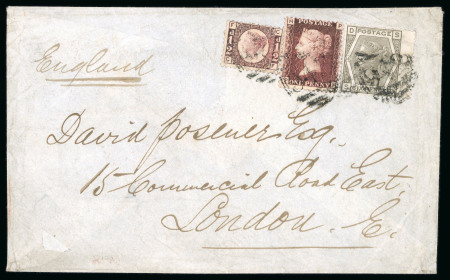 England
POSTAGE
ONE PENNY
David Posener Esq.
15 Commercial Road East,
London. E.